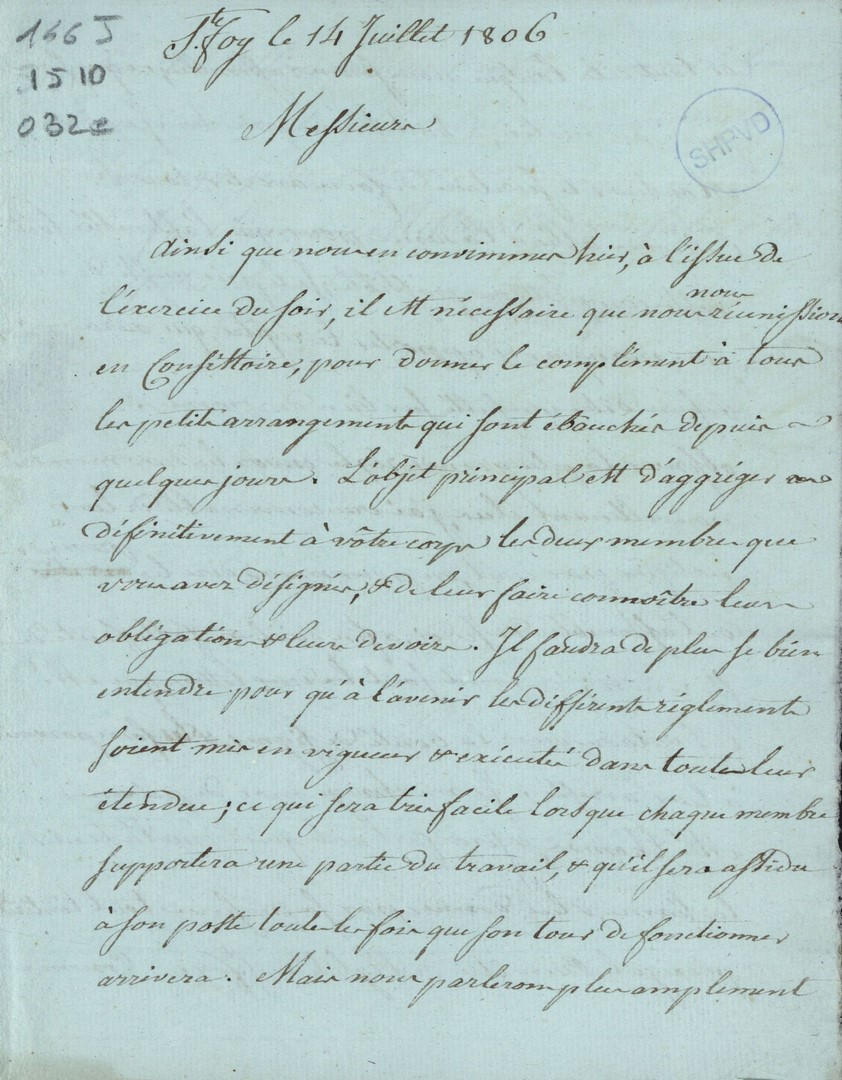 166 J
1510
032e
Ste. foy le 14 Juillet 1806
Messieurs
SHPVD
Ainsi que nous en convinmmes hier, à l'issue de
l'éxercice du soir, il est nécessaire que nous nous réunissions
en Consistoire, pour donner le complément à tous
les petits arrangements qui sont ébauchés depuis
quelques jours. L'objet principal est d'aggréger
définitivement à vôtre corps les deux membres que
vous avez désignés, & de leur faire connoître leurs
obligations & leurs devoirs. Il faudra de plus se bien
entendre pour qu'à l'avenir les différents réglements
soient mis en vigueur & exécutés dans toute leur
étendue; ce qui sera très facile lorsque chaque membre
supportera une partie du travail, & qu'il sera assidu
à son poste toutes les fois que son tour de fonctionner
arrivera. Mais nous parlerons plus amplement